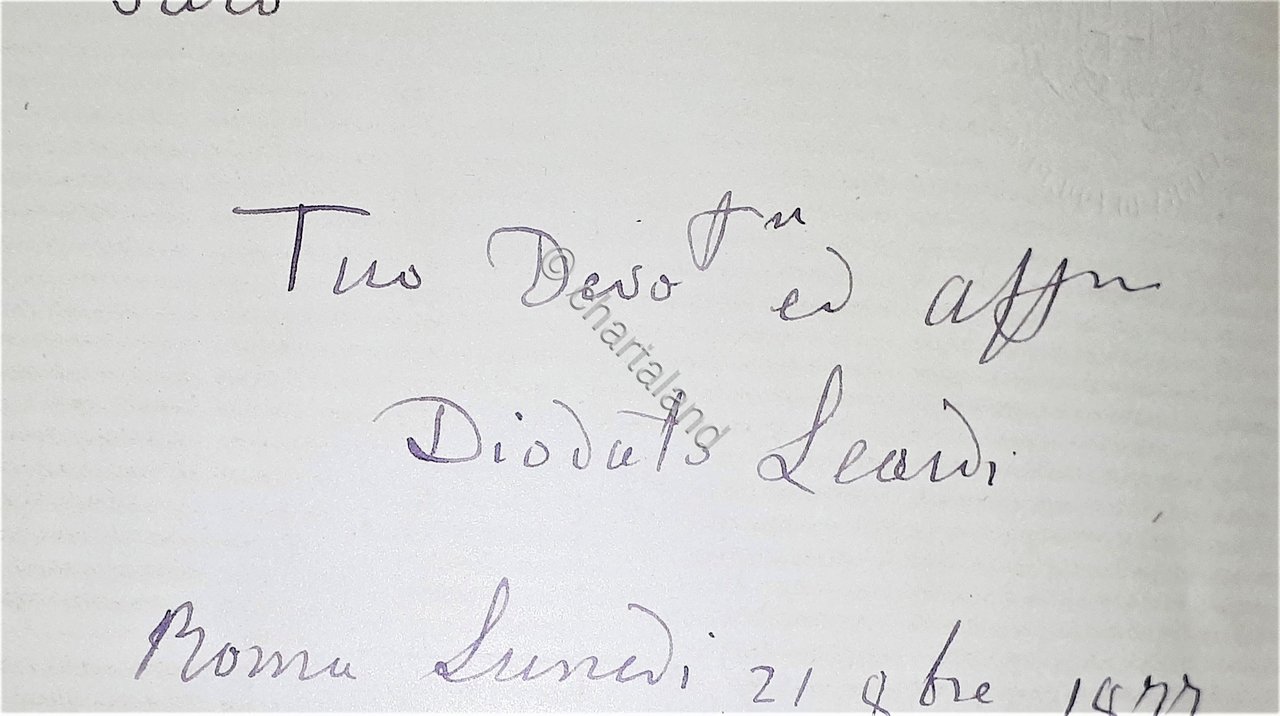 Tuo Devo ed aff
Diodato Leardi
Roma Lunedì 21 8bre 1877
© chartaland